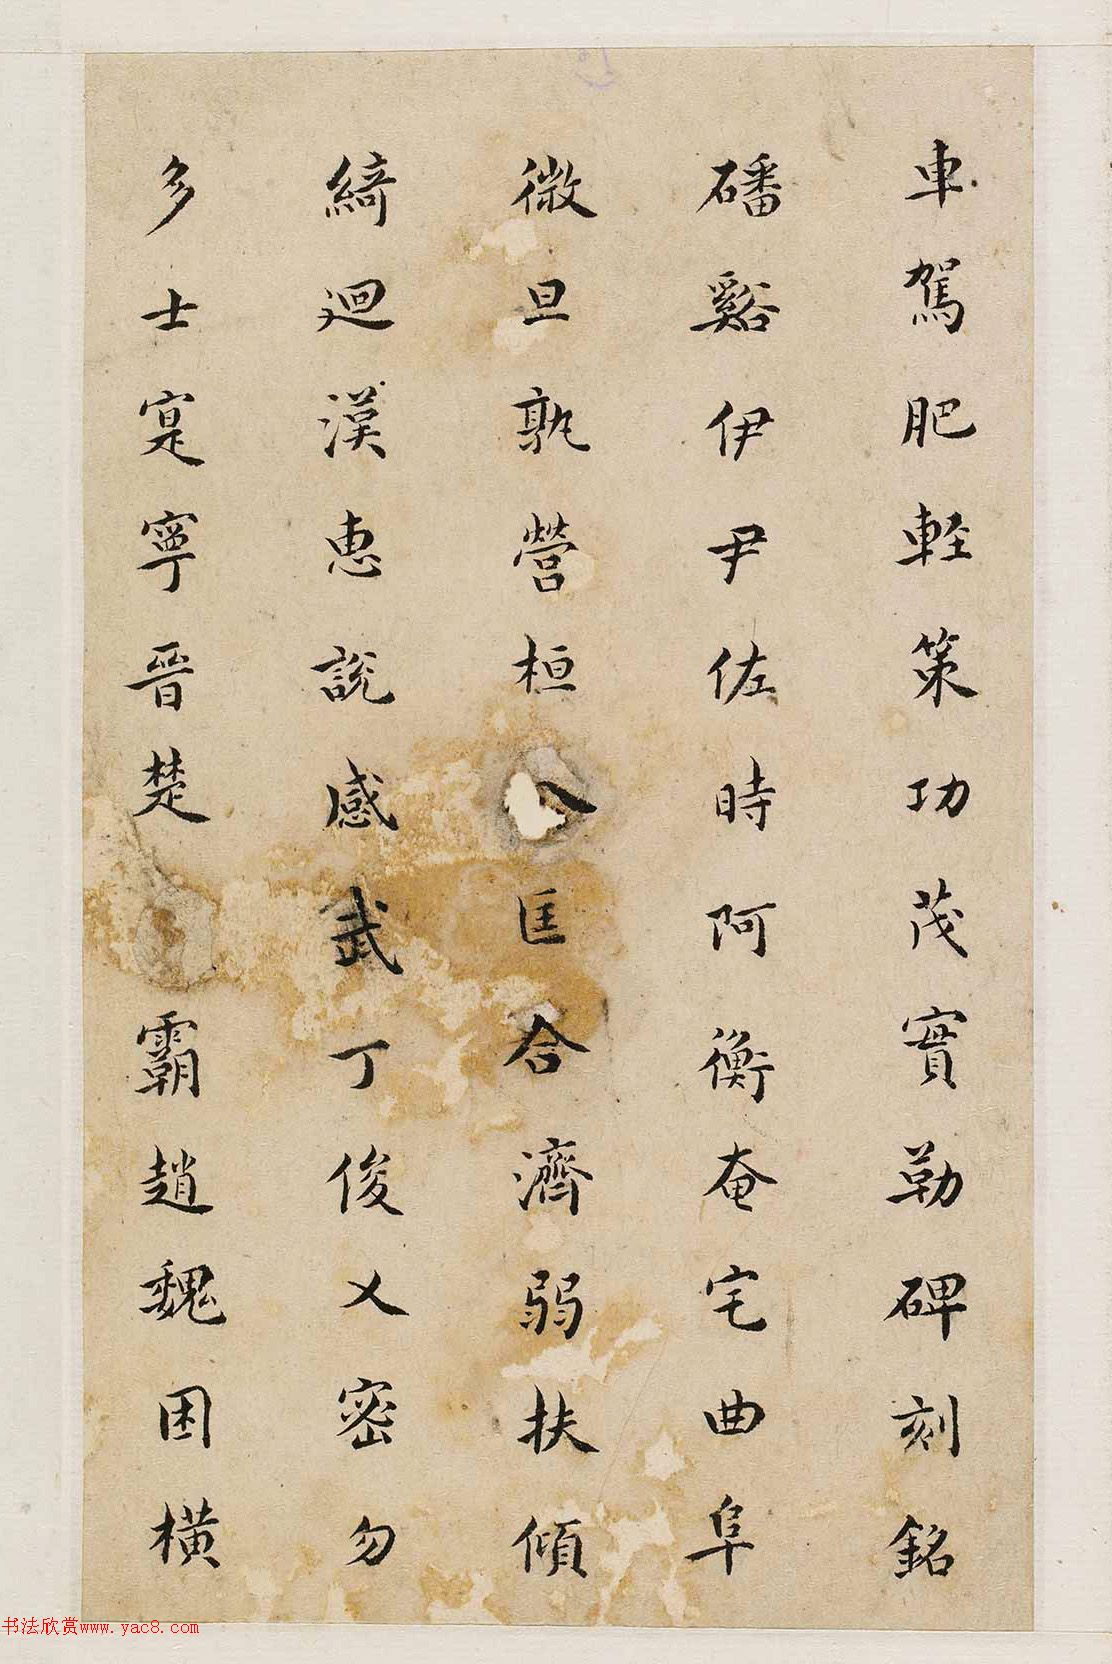 車駕肥輕策功茂實勒碑刻銘
磻谿伊尹佐時阿衡奄宅曲阜
微旦孰營桓匡合濟弱扶傾
綺迴漢惠說感武丁俊乂密勿
多士寔寧晉楚霸趙魏困橫
书法欣赏www.yac8.com